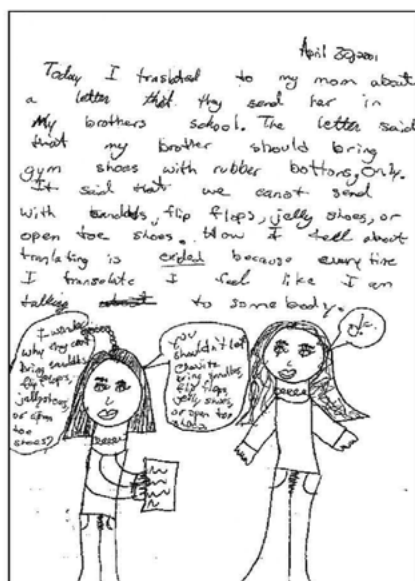 April 30, 2001
Today I translated to my mom about
a letter that they send her in
My brothers school. The letter said
that my brother should bring
gym shoes with rubber bottons, only.
It said that we canot send
with sandals, flip flops, jelly shoes, or
open toe shoes. How I tell about
translating is exided because every time
I translate I feel like I am
talking to somebody.
I wonder
why they cant
bring sandals,
flip flops,
jelly shoes,
or open
toe
shoes?
You
shouldn't let
bring sandles,
flip flops,
jelly shoes,
or open toe
ok.